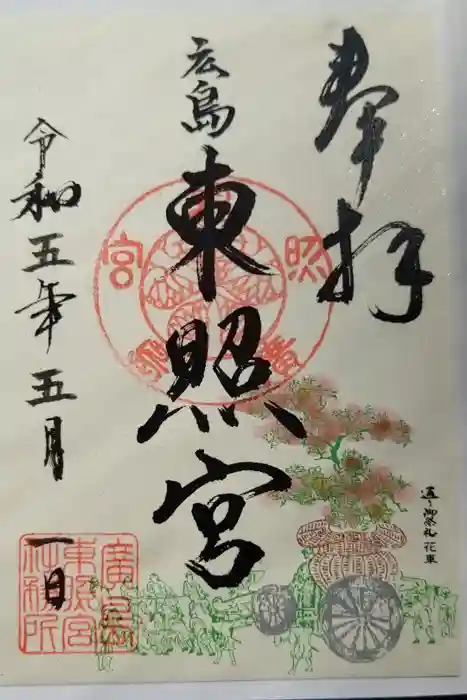 奉拝
広島
東照宮
令和五年五月
一日
通り御祭礼花車
東照宮
廣島
東照宮
社務所